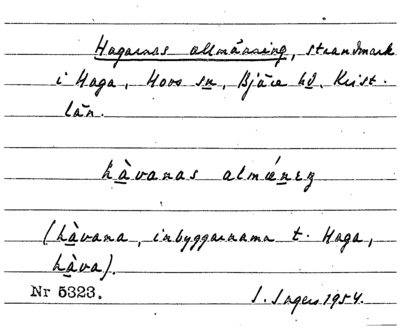 Hagarnas allmänning, strandmark
i Haga, Hovs sn, Bjäre hd, Krist.
län.
hàvanas almǽneŋ
(hàvana, inbyggarnama t. Haga,
hàva).
Nr 5323.
S. Ingers 1954.